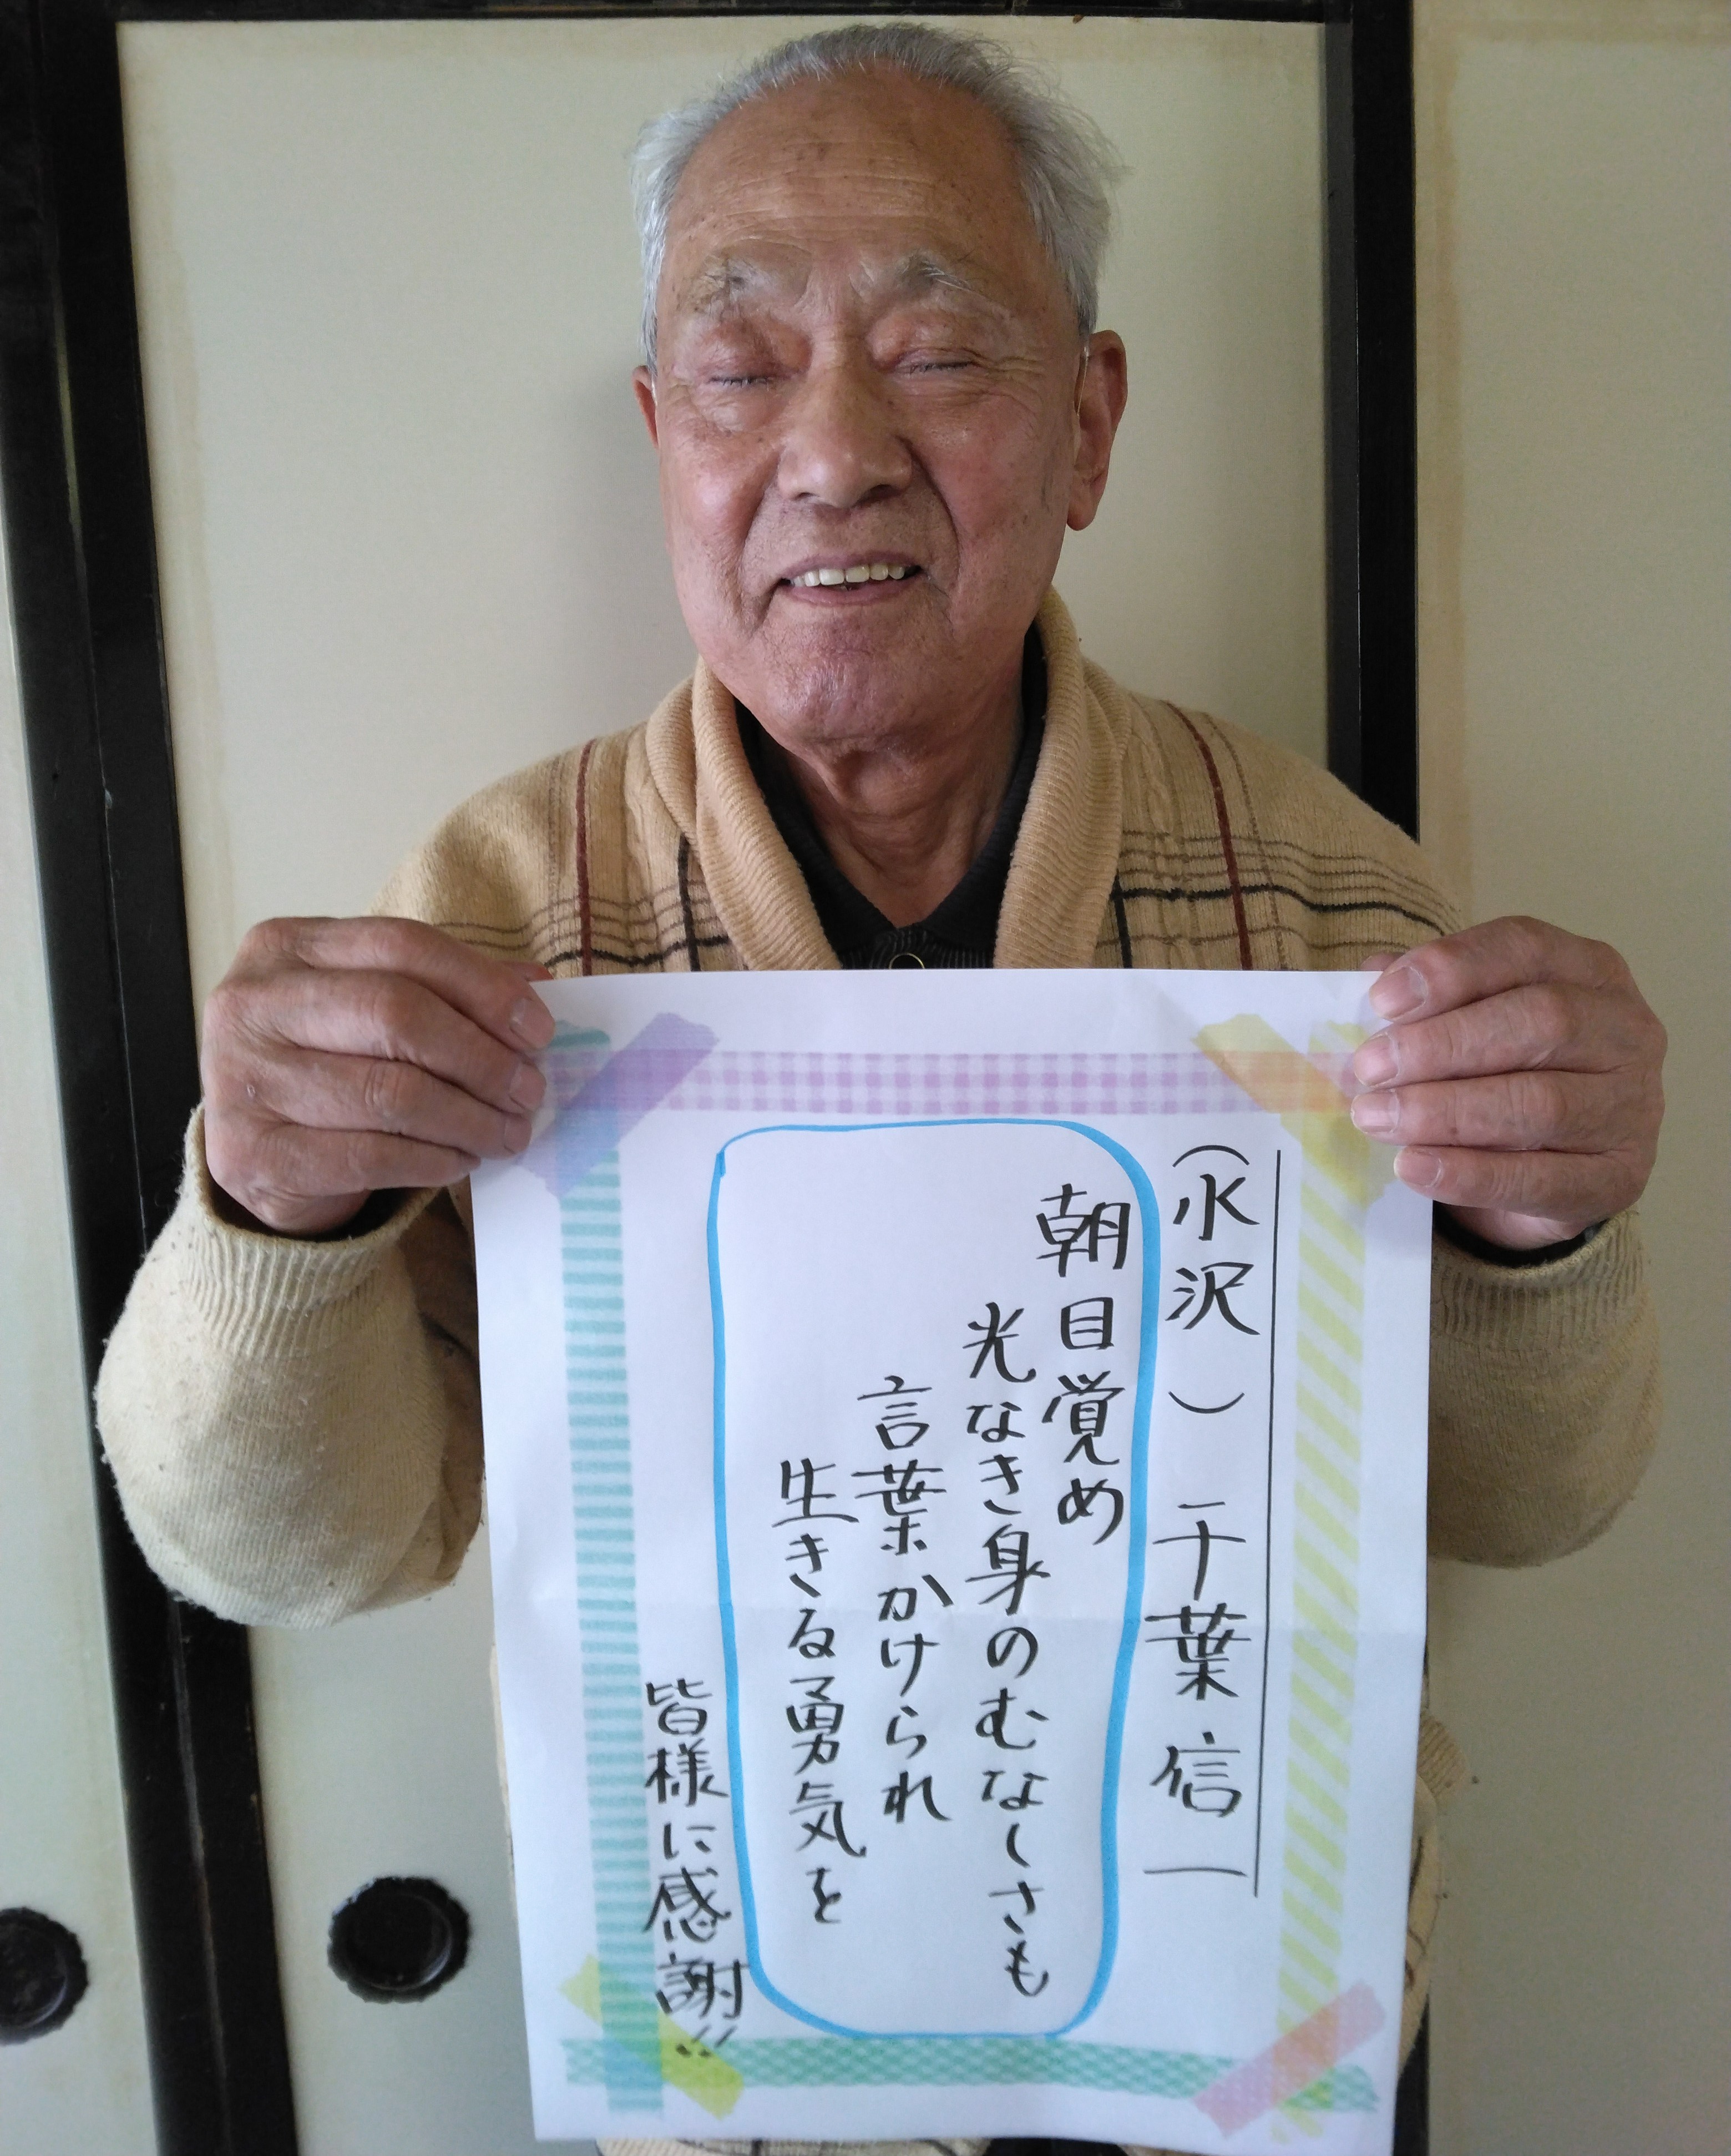 (水沢) 千葉信一
朝目覚め
光なき身のむなしさも
言葉かけられ
生きる勇気を
皆様に感謝!!